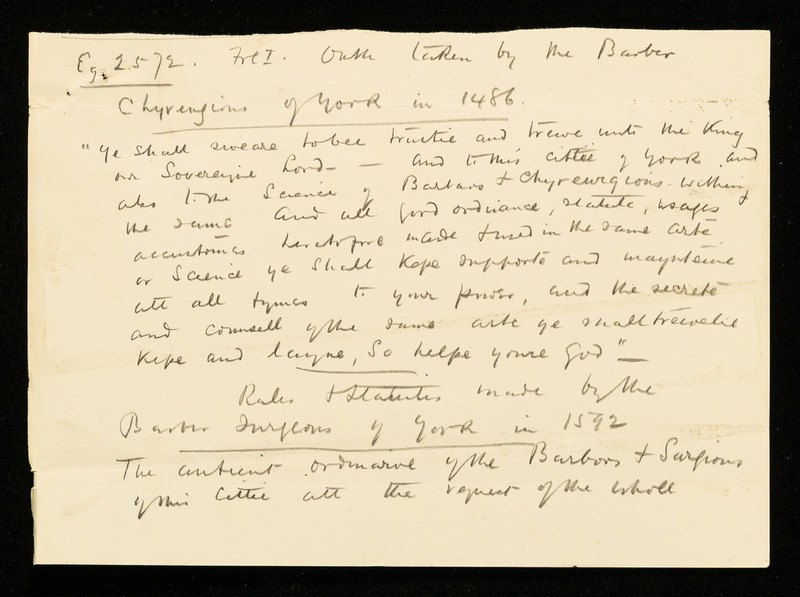 Eg. 2572. Fol I. Oath taken by the Barber
Chyrurgions of York in 1486.
"Ye shall sweare to bee trustie and trewe unto the King
our Sovereigne Lord — and to this cittee of York and
also to the Science of Barbars & Chyreurgions withing
the same and all good ordinance, statute, usages &
accustomas heretofore made & used in the same arte
or Science ye shall kepe supporte and maynteine
att all tymes to your power, and the secrete
and counsell of the same arte ye shall trewelie
kepe and layne, So helpe youre God"—
Rules & Statutes made by the
Barber Surgeons of York in 1592
The antient ordinaive of the Barbors & Surgions
of this Cittee att the request of the wholl